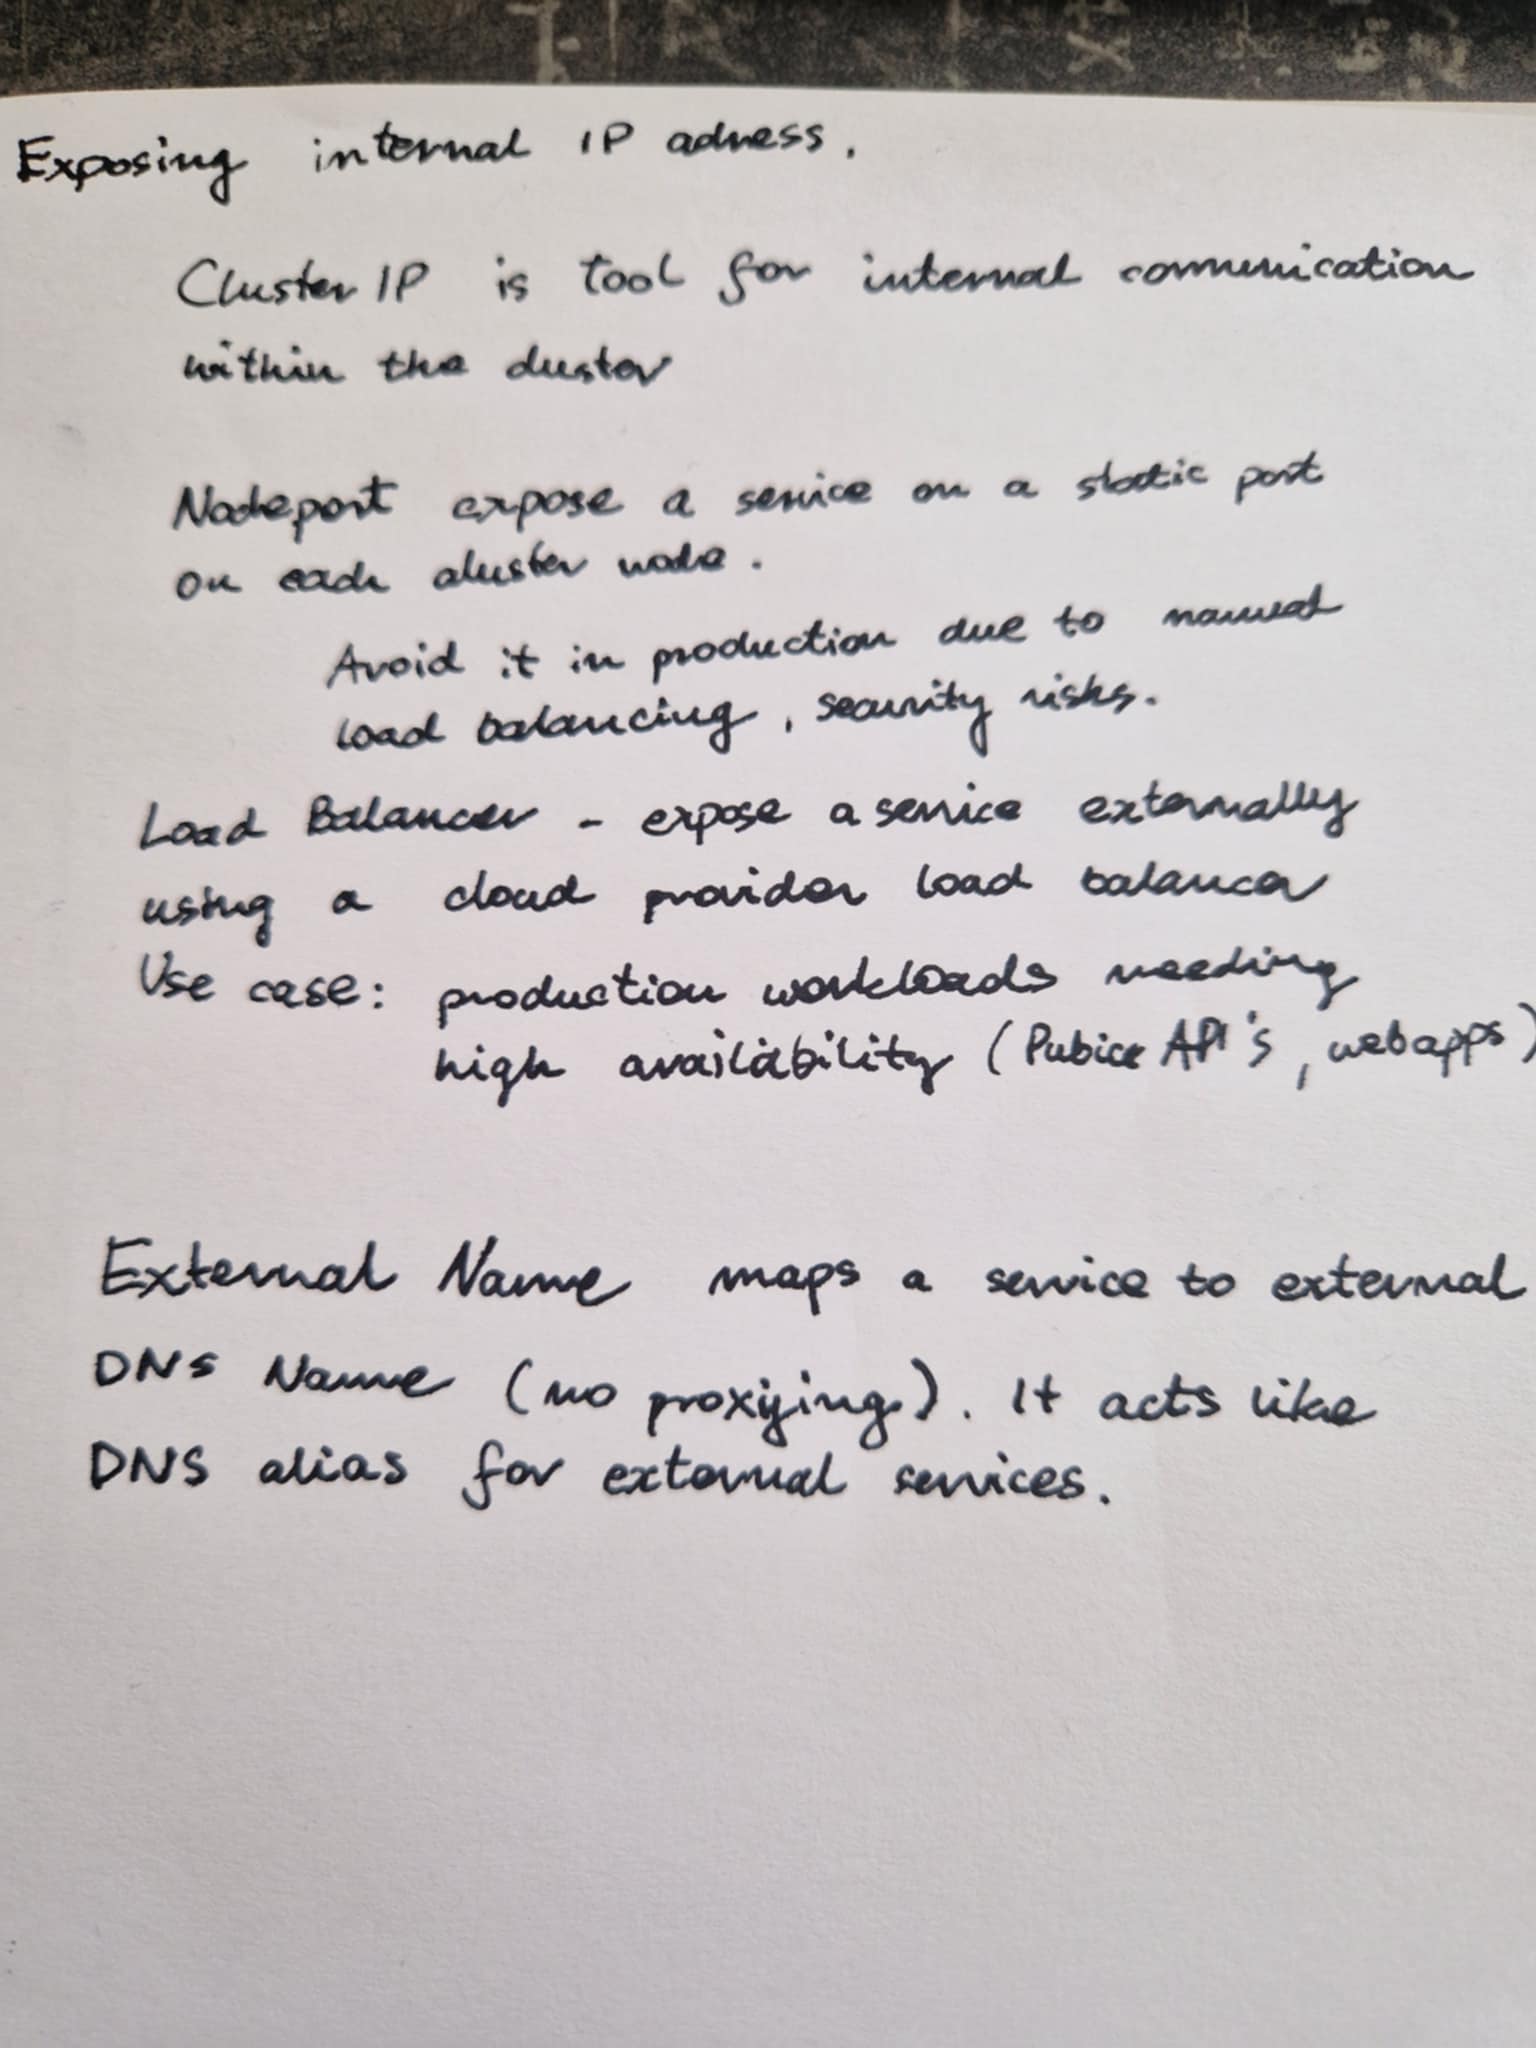 Exposing internal IP adress.
Cluster IP is tool for internal communication
within the cluster
Nodeport expose a service on a static port
on each cluster node.
Avoid it in production due to manual
load balancing, security risks.
Load Balancer - expose a service externally
using a cloud provider load balancer
Use case: production workloads needing
high availability (Public API's, webapps)
External Name maps a service to external
DNS Name (no proxying). It acts like
DNS alias for external services.